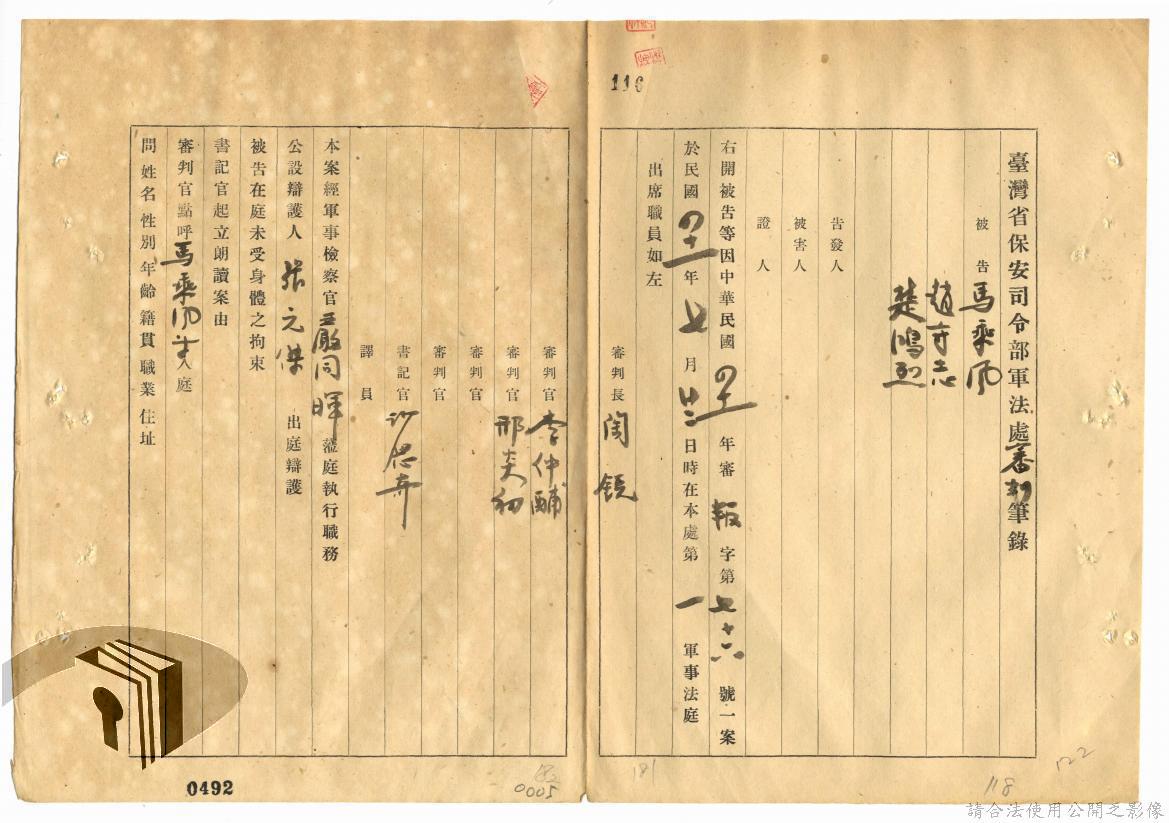 116
臺灣省保安司令部軍法處審判筆錄
被告 馬乘風
趙守志
楚鴻烈
告發人
被害人
證人
右開被告等因中華民國四十一年審叛字第七十六號一案
於民國四十一年七月廿二日時在本處第一軍事法庭
出席職員如左
審判長 陶
審判官 李仲輔
審判官 邢炎初
審判官
審判官
書記官
譯員
本案經軍事檢察官 嚴同暉 蒞庭執行職務
公設辯護人 張元傑 出庭辯護
被告在庭未受身體之拘束
書記官起立朗讀案由
審判官點呼馬乘風等入庭
問姓名性別年齡籍貫職業住址
0492
0005
181
118
122
請合法使用公開之影像